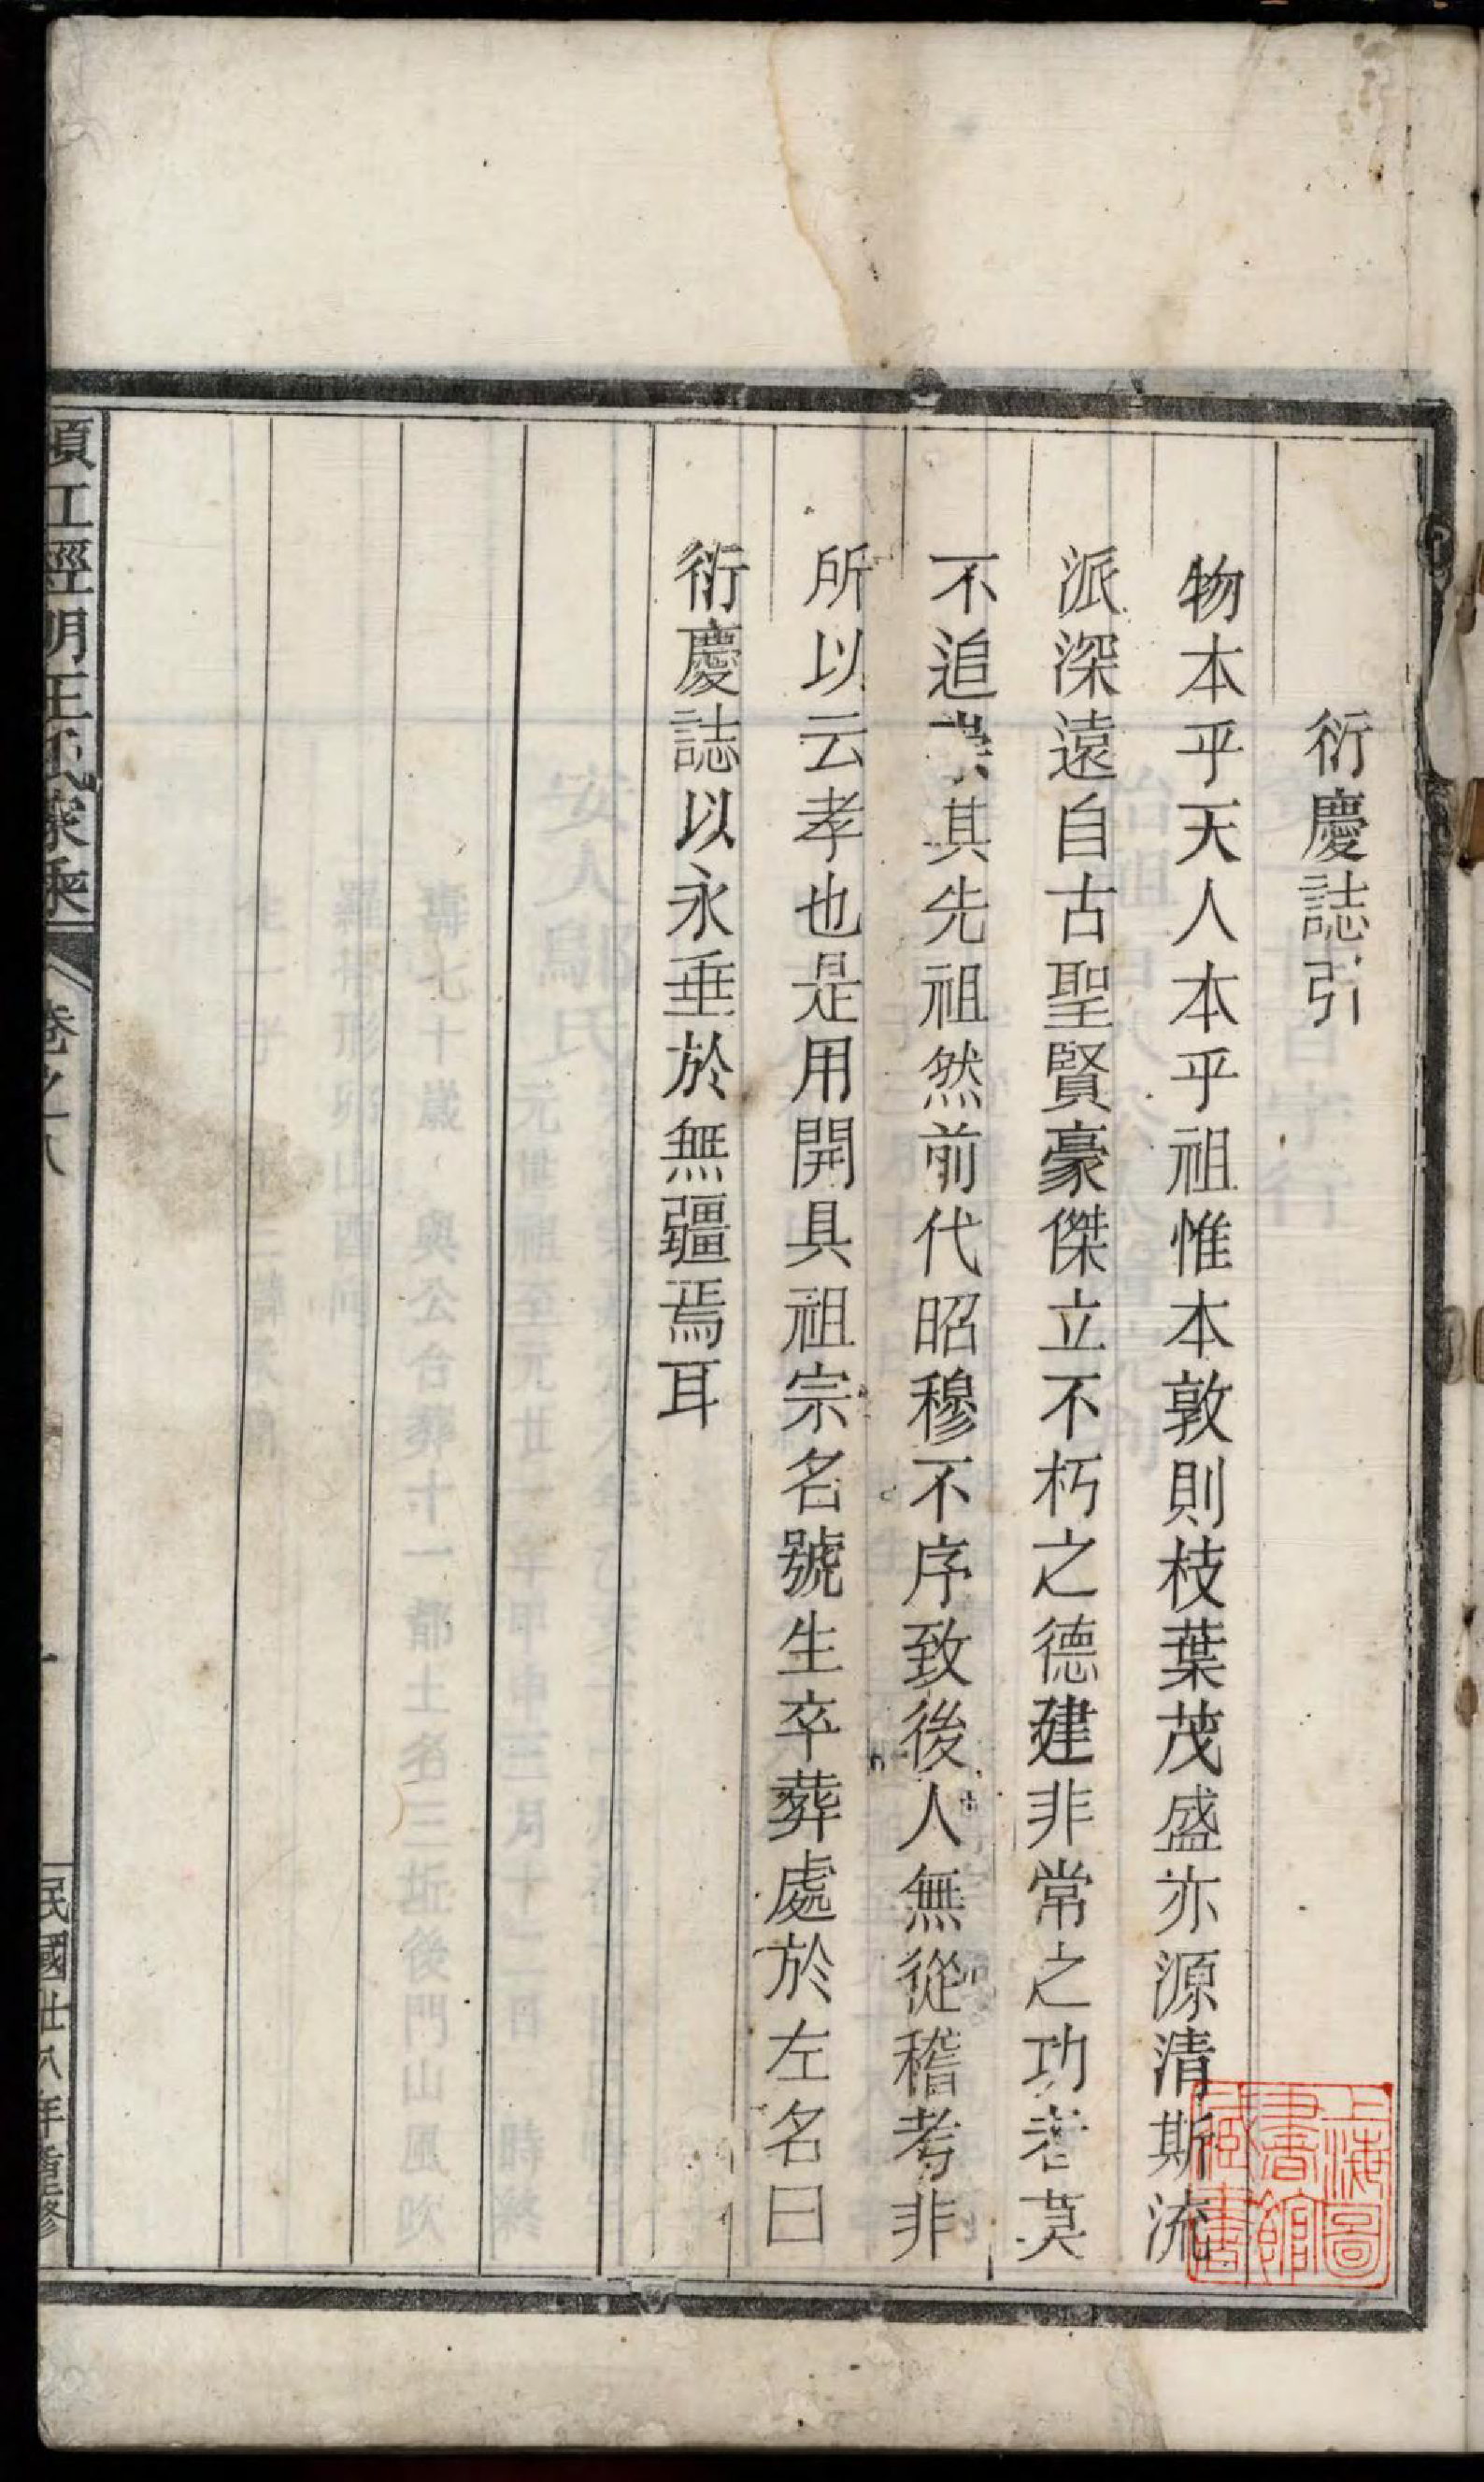 衍慶誌引
物本乎天人本乎祖惟本敦則枝葉茂盛亦源清斯流
派深遠自古聖賢豪傑立不朽之德建非常之功者莫
不追業其先祖然前代昭穆不序致後人無從稽考非
所以云孝也是用開具祖宗名號生卒葬處於左名曰
衍慶誌以永垂於無疆焉耳
項江經明王氏家乘
卷之八
一
民國廿八年重修
上海圖書館藏書